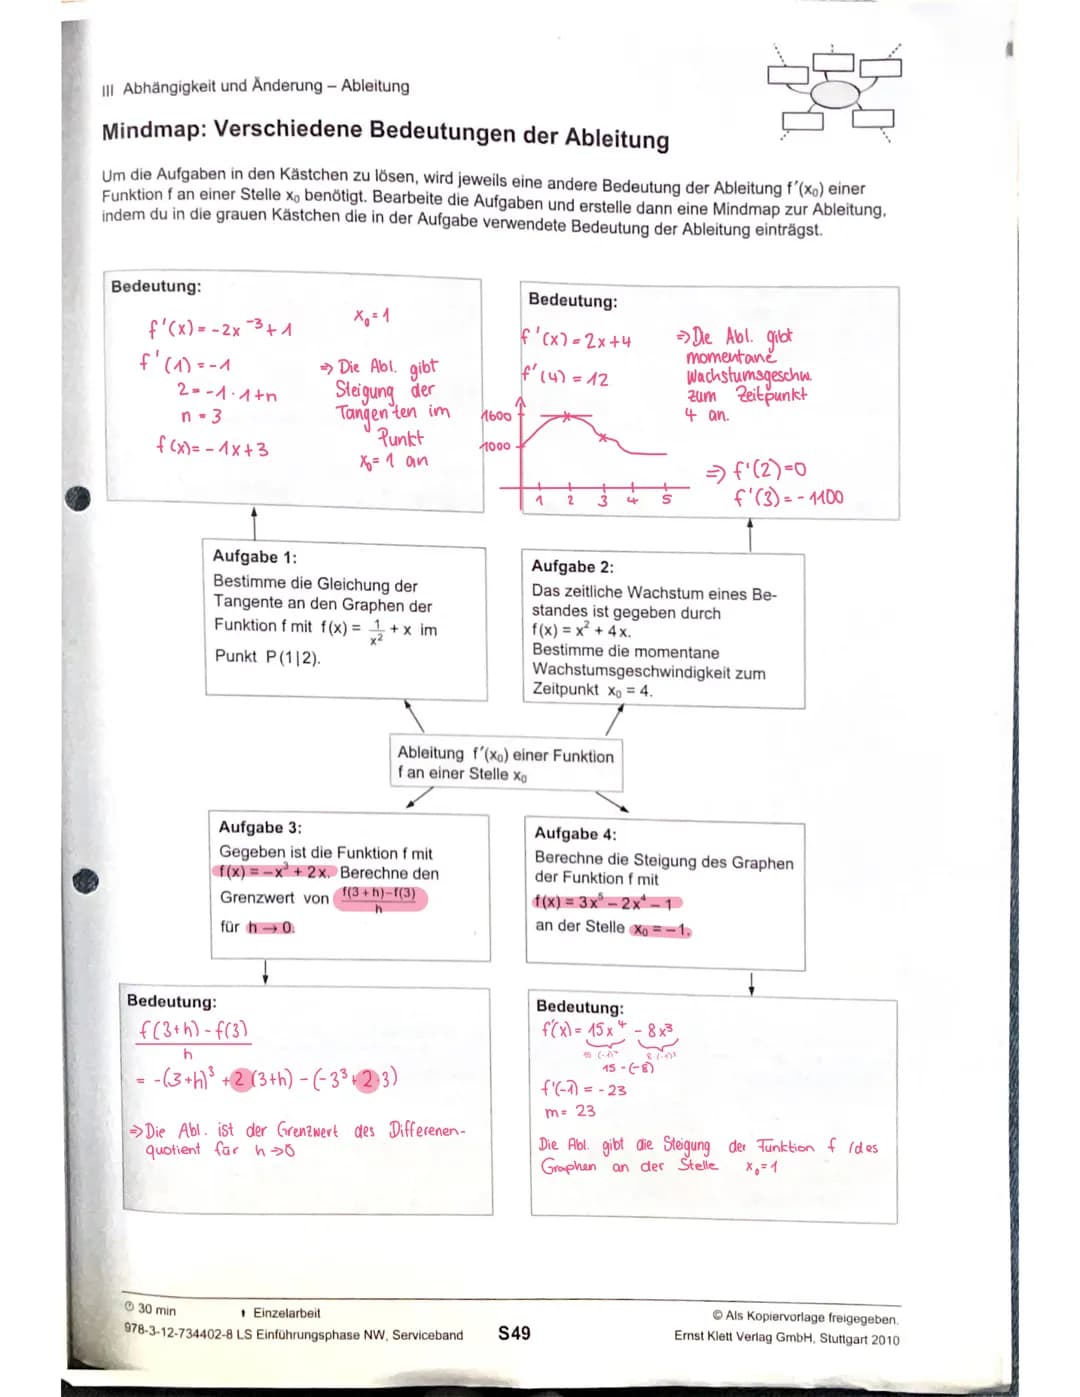 III Abhängigkeit und Änderung – Ableitung
Mindmap: Verschiedene Bedeutungen der Ableitung
Um die Aufgaben in den Kästchen zu lösen, wird jeweils eine andere Bedeutung der Ableitung f'(x₀) einer
Funktion f an einer Stelle x₀ benötigt. Bearbeite die Aufgaben und erstelle dann eine Mindmap zur Ableitung,
indem du in die grauen Kästchen die in der Aufgabe verwendete Bedeutung der Ableitung einträgst.
Bedeutung:
f'(x) = -2x⁻³ + 1
f'(1) = -1
2 = -1 · 1 + n
n = 3
f(x) = -1x + 3
x₀ = 1
⇒ Die Abl. gibt
Steigung der
Tangenten im
Punkt
x₀ = 1 an
Bedeutung:
f'(x) = 2x + 4
f'(4) = 12
⇒ Die Abl. gibt
momentane
Wachstumsgeschw.
zum Zeitpunkt
4 an.
1600
1000
1 2 3 4 5
⇒ f'(2) = 0
f'(3) = -1100
Aufgabe 1:
Bestimme die Gleichung der
Tangente an den Graphen der
Funktion f mit f(x) = 1/x² + x im
Punkt P(1|2).
Aufgabe 2:
Das zeitliche Wachstum eines Be-
standes ist gegeben durch
f(x) = x² + 4x.
Bestimme die momentane
Wachstumsgeschwindigkeit zum
Zeitpunkt x₀ = 4.
Ableitung f'(x₀) einer Funktion
f an einer Stelle x₀
Aufgabe 3:
Gegeben ist die Funktion f mit
f(x) = –x³ + 2x. Berechne den
Grenzwert von f(3+h)–f(3)/h
für h → 0.
Aufgabe 4:
Berechne die Steigung des Graphen
der Funktion f mit
f(x) = 3x⁵ – 2x⁴ – 1
an der Stelle x₀ = –1.
Bedeutung:
f(3+h) - f(3)
h
= -(3+h)³ + 2(3+h) - (-3³ + 2·3)
⇒ Die Abl. ist der Grenzwert des Differenen-
quotient für h → 0
Bedeutung:
f'(x) = 15x⁴ - 8x³
15 - (-8)
f'(-1) = -23
m = 23
Die Abl. gibt die Steigung der Funktion f /des
Graphen an der Stelle x₀ = 1
30 min
Einzelarbeit
© Als Kopiervorlage freigegeben.
978-3-12-734402-8 LS Einführungsphase NW, Serviceband
S49
Ernst Klett Verlag GmbH, Stuttgart 2010